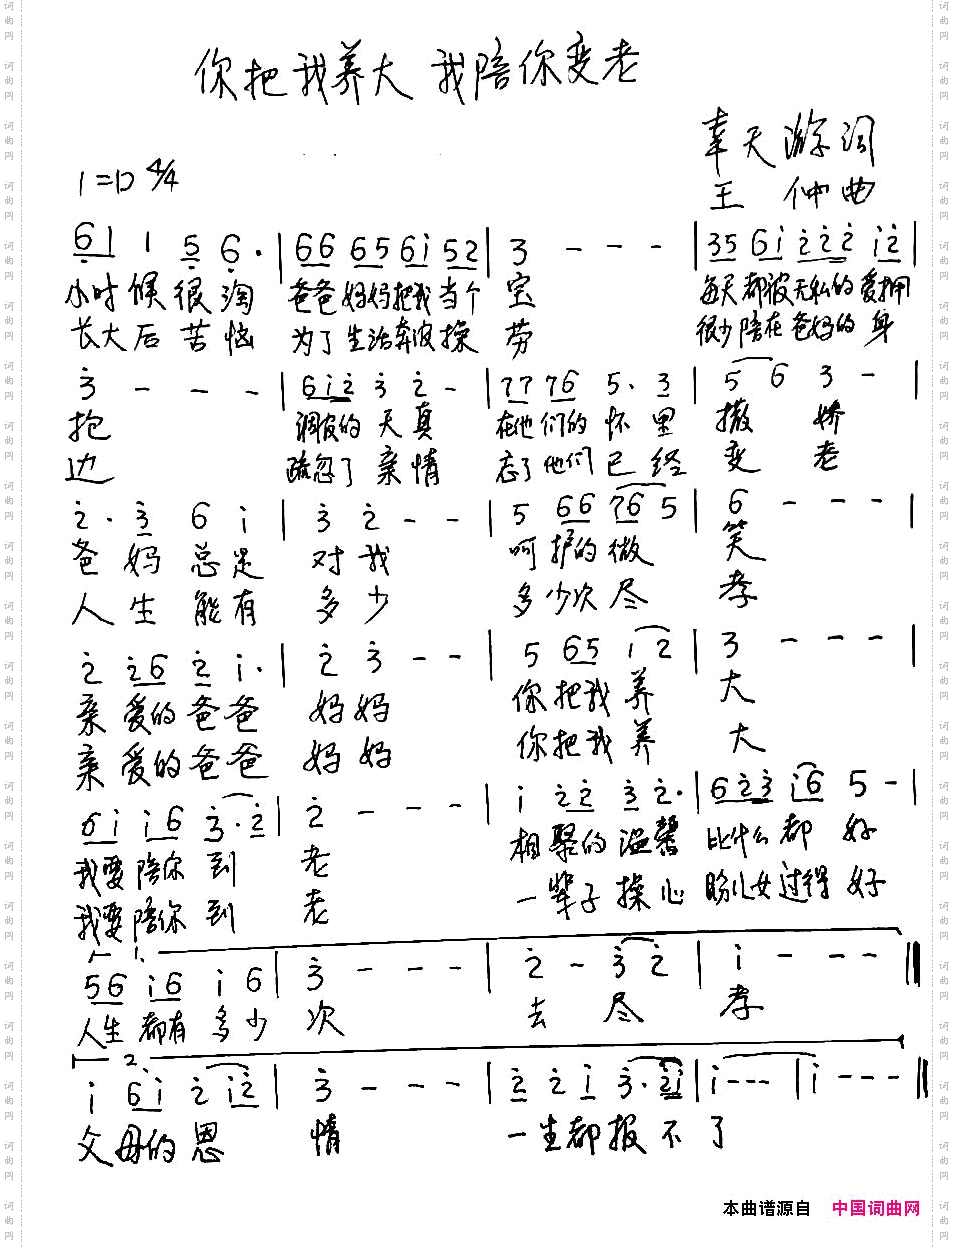 你把我养大 我陪你变老
幸天游词
1=D 4/4
王 仲曲
6 1 1 5 6· | 66 65 6i 52 | 3 - - - | 35 6i 222 i2 |
小时候很淘 爸爸妈妈把我当个 宝 每天都被无私的爱拥
长大后苦恼 为了生活奔波操 劳 很少陪在爸妈的身
3 - - - | 6i2 3 2 - | 77 76 5· 3 | 5 6 3 - |
抱 调皮的天真 在他们的怀里 撒 娇
边 疏忽了亲情 忘了他们已经 变 老
2· 3 6 i | 3 2 - - | 5 66 76 5 | 6 - - - |
爸妈总是 对我 呵护的微 笑
人生能有 多少 多少次尽 孝
2 26 2 i· | 2 3 - - | 5 65 i2 | 3 - - - |
亲爱的爸爸 妈妈 你把我养 大
亲爱的爸爸 妈妈 你把我养 大
6i i6 3·2 | 2 - - - | i 22 3 2· | 623 i6 5 - |
我要陪你到 老 相聚的温馨 比什么都 好
我要陪你到 老 一辈子操心 盼儿女过得 好
1.
56 i6 i 6 | 3 - - - | 2 - 3 2 | i - - - ||
人生都有多少 次 去 尽 孝
2.
i 6i 2 i2 | 3 - - - | 2 2 i 3·2i | i - - - | i - - - ||
父母的恩 情 一生都报不了
本曲谱源自 中国词曲网